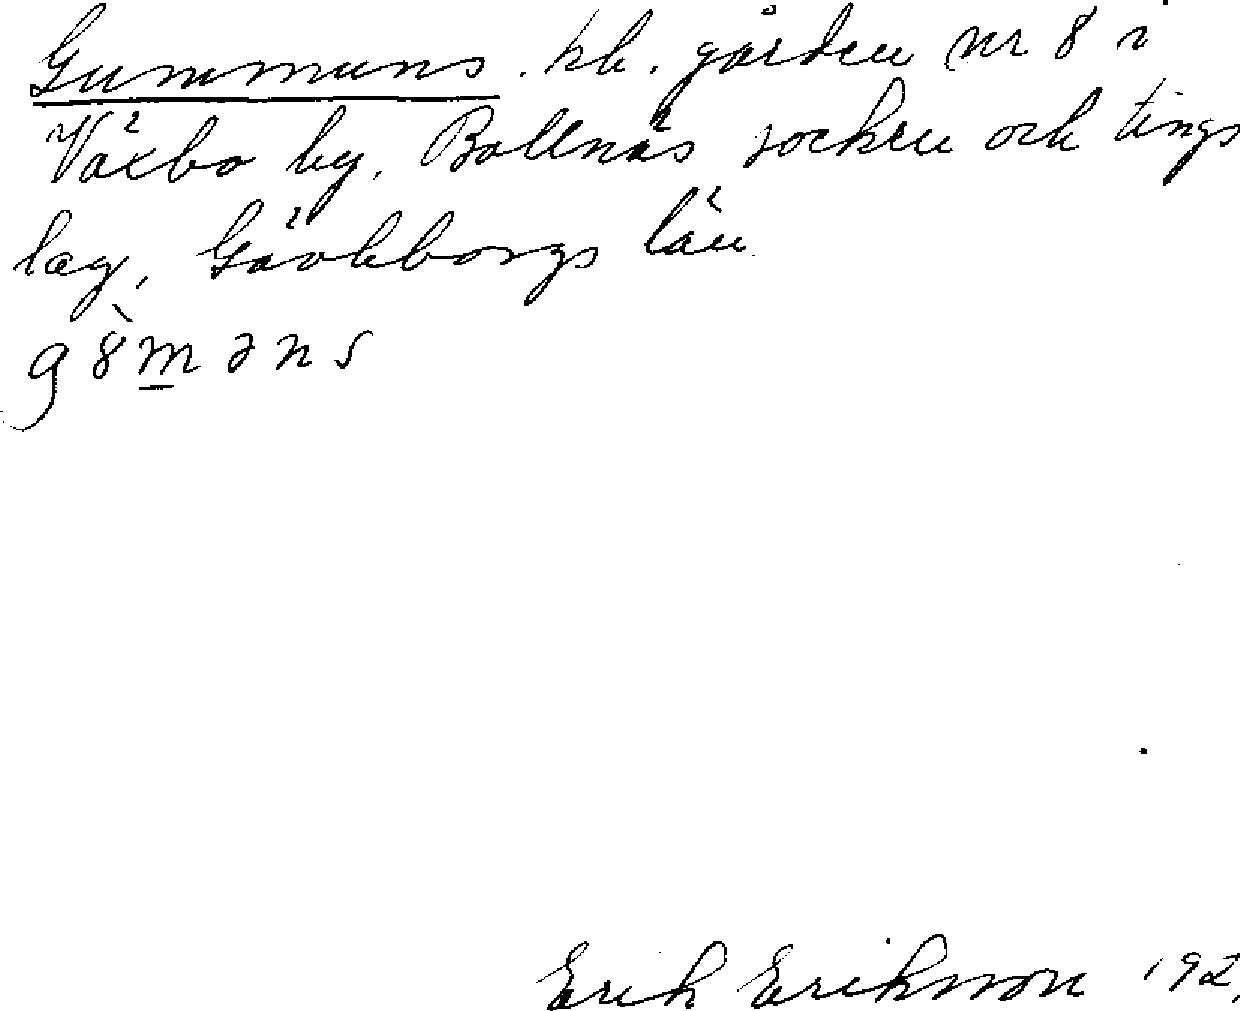 Gummuns. kb. gården nr 8 i
Växbo by, Bollnäs socken och tings
lag, Gävleborgs län
g8̀m̲əns
Erik Erikson 192